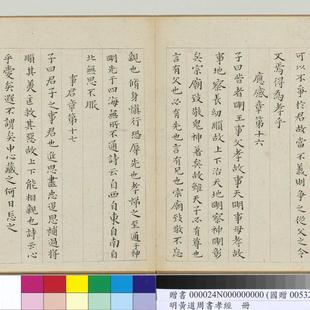 可以不爭於君故當不義則爭之從父之令
又焉得為孝乎
應感章第十六
子曰昔者明王事父孝故事天明事母孝故
事地察長幼順故上下治天地明察神明彰
矣宗廟致敬鬼神著矣故雖天子必有尊也
言有父也必有先也言有兄也宗廟致敬不忘
親也脩身慎行恐辱先也孝悌之至通于神
明光于四海無所不通詩云自西自東自南自
北無思不服
事君章第十七
子曰君子之事君也進思盡忠退思補過將
順其美匡救其惡故上下能相親也詩云心
乎愛矣遐不謂矣中心藏之何日忘之
贈書 000024N000000000 (國贈 00532
明黃道周書孝經 冊